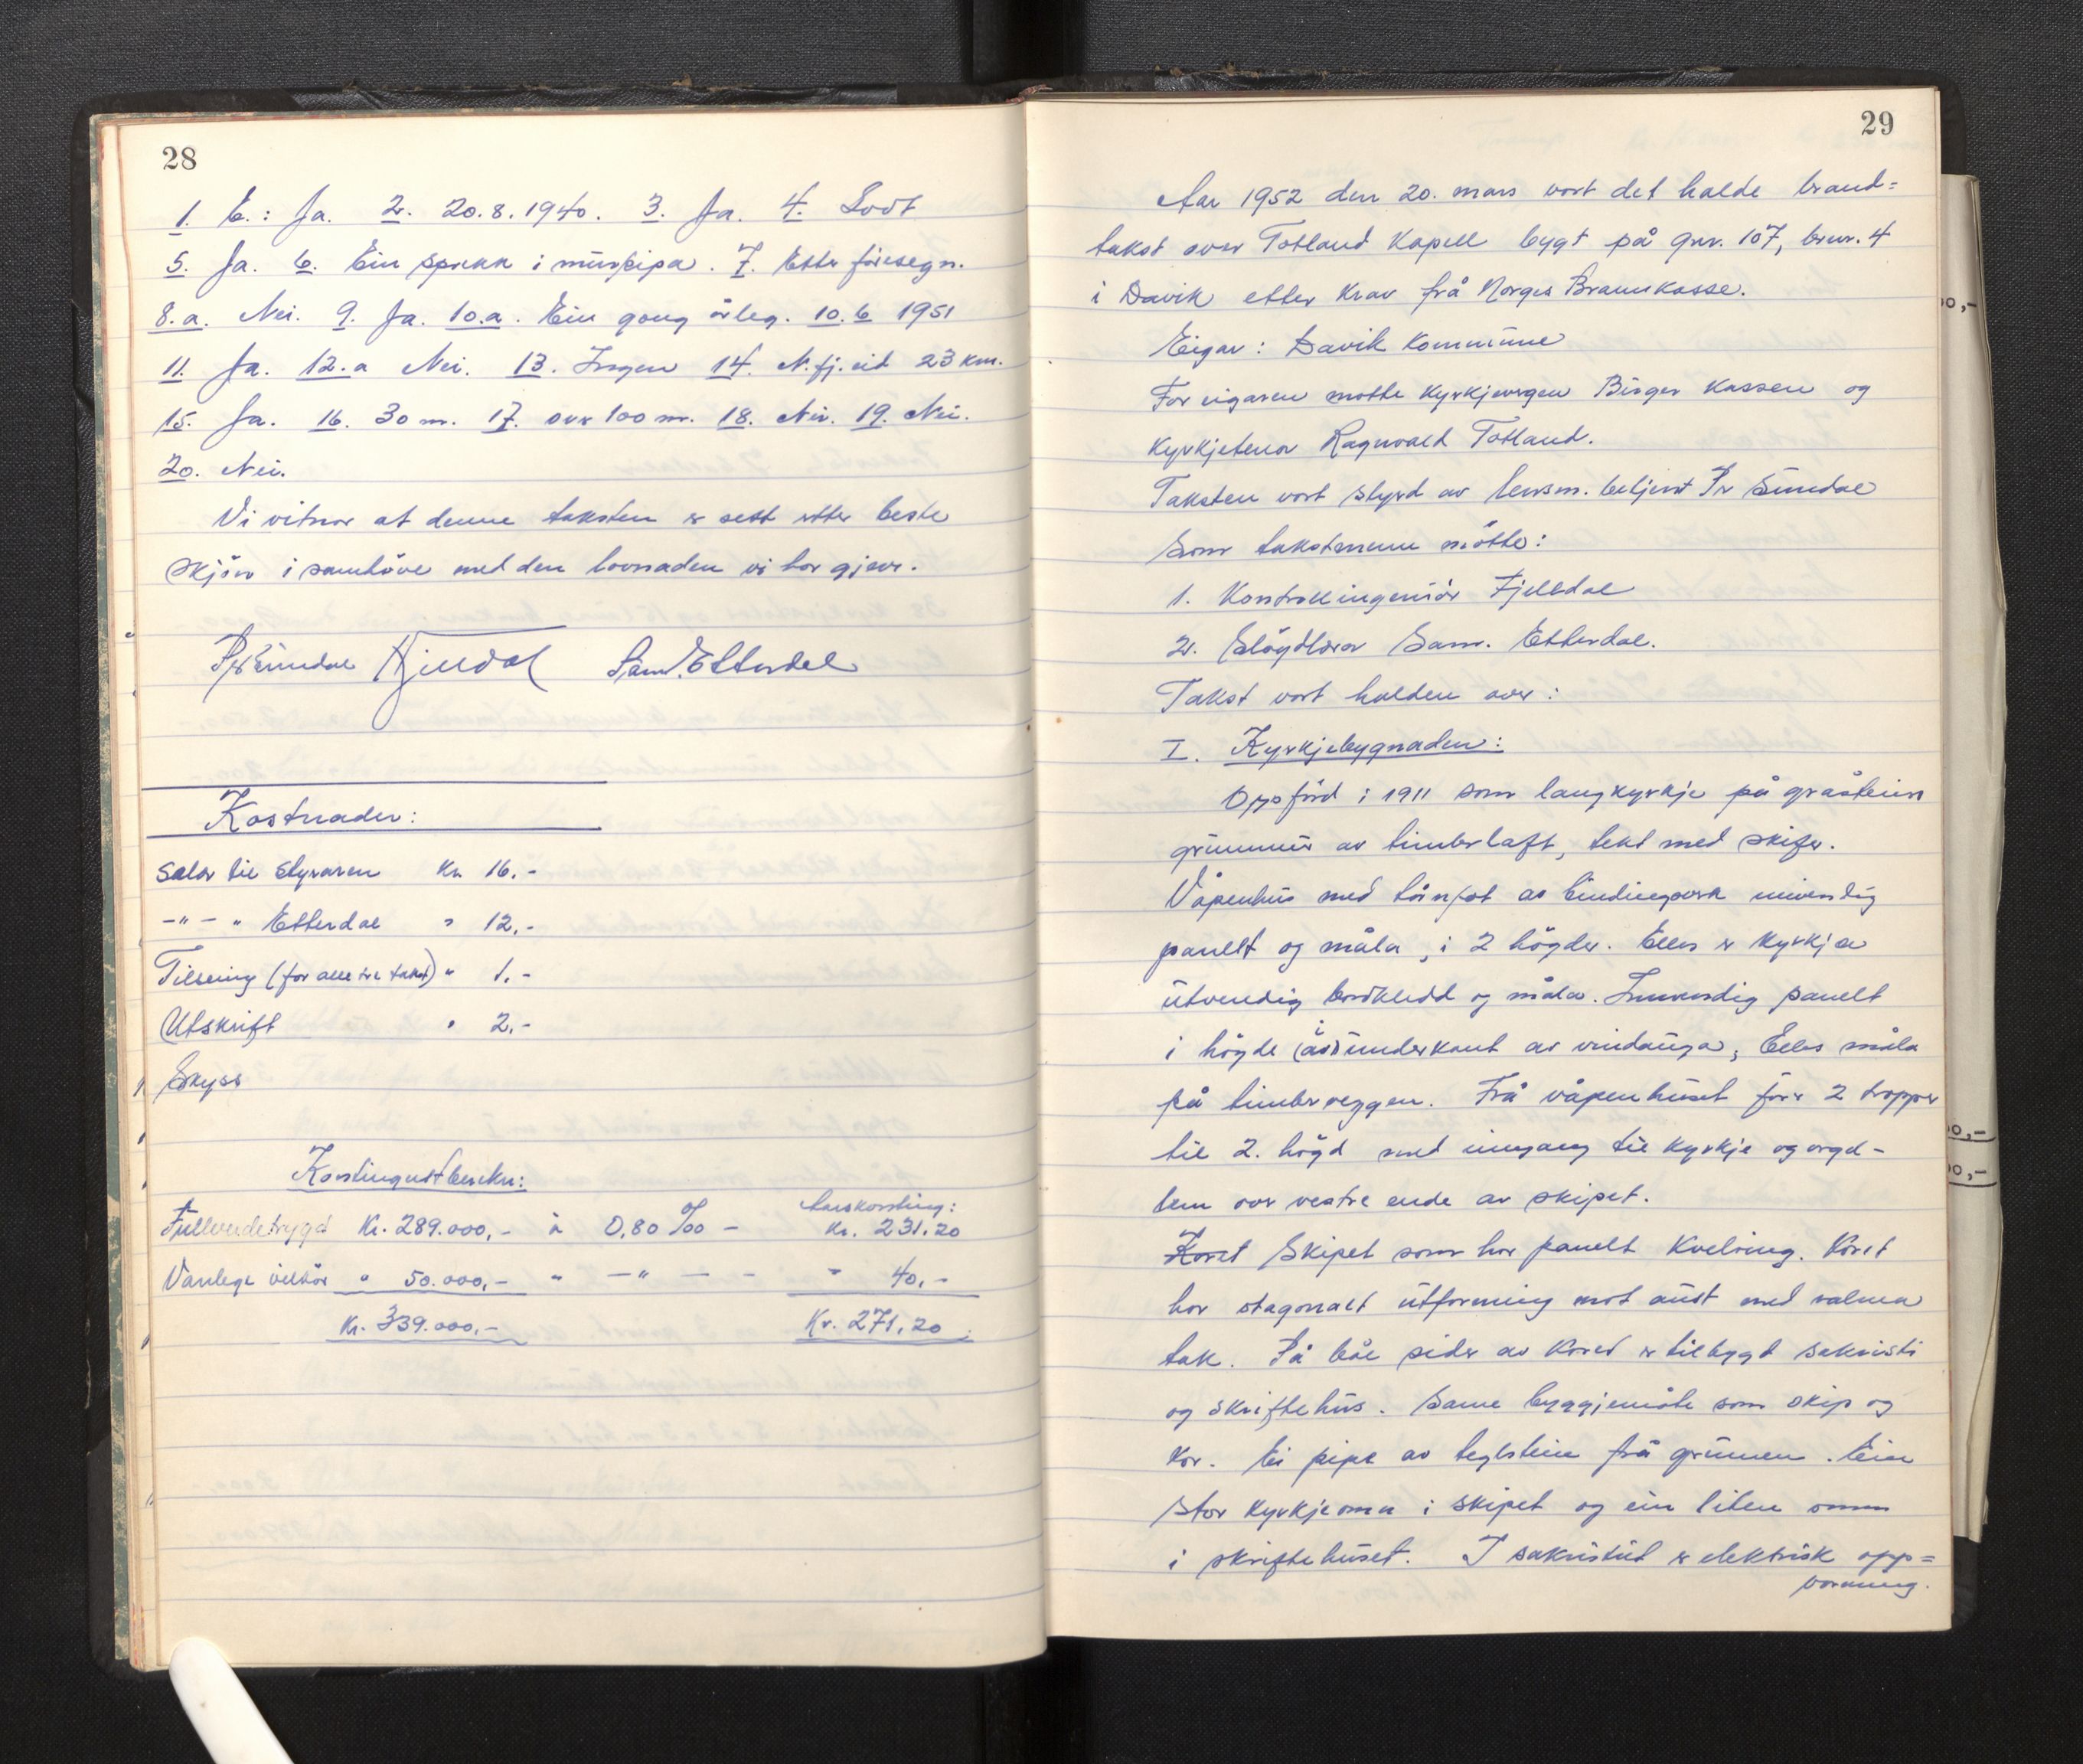 28
1. b.: Ja. 2. 20.8.1940. 3. Ja. 4. Lodt
5. Ja. 6. Ein sprekk i murpipa. 7. Etter föresegn.
8.a. Nei. 9. Ja. 10.a. Ein gong årleg. 10.b 1951
11. Ja. 12.a Nei. 13. Ingen 14. N.fj.eid 23 km.
15. Ja. 16. 30 m. 17. over 100 m. 18. Nei. 19. Nei.
20. Nei.
Vi vitnar at denne taksten er sett etter beste
skjön i samhöve med den lovnaden vi har gjeve.
Per Sundal Fjelldal Sam. Etterdal
Kostnader:
Salær til styraren Kr. 16.-
-"- " Etterdal " 12.-
Tilseiing (for alle tre takst) " 1.-
Utskrift " 2.-
Skyss
Kontingentberekn:
Årskonting:
Fullverdetrygd Kr. 289.000,- à 0,80 ‰ - Kr. 231,20
Vanlege vilkår " 50.000,- " -"- - - " 40,-
Kr. 339.000,- Kr. 271,20
29
Aar 1952 den 20. mars vart det halde brand=
takst over Totland Kapell bygt på gnr. 107, bnr. 4
i Davik etter krav frå Norges Brannkasse.
Eigar: Davik Kommune
For eigaren møtte kyrkjevergen Birger Kassen og
kyrkjetenar Ragnvald Totland.
Taksten vart styrd av lensm. betjent Per Sundal
Som takstmenn møtte:
1. Kontrollingeniör Fjelldal
2. Slöydlærar Sam. Etterdal.
Takst vart halden over:
I. Kyrkjebygnaden:
Oppförd i 1911 som langkyrkje på gråstein
grunnmur av timberlaft, tekt med skifer.
Våpenhus med tårnfot av bindingsverk innvendig
panelt og måla, i 2 högder. Elles er kyrkja
utvendig bordkledd og måla. Innvendig panelt
i högde (av) underkant av vindauga, Elles måla
på timberveggen. Frå våpenhuset förer 2 tropper
til 2. högd med inngang til kyrkje og orgel-
lem over vestre ende av skipet.
Koret Skipet som har panelt kvelving. Koret
har otagonalt utforming mot aust med valma
tak. På båe sider av koret er tilbygd sakristi
og skriftehus. Same byggjemåte som skip og
kor. Ei pipe av teglstein frå grunnen. Ein
stor kyrkjeomn i skipet og ein liten omn
i skriftehuset. I sakristiet er elektrisk opp=
varming.